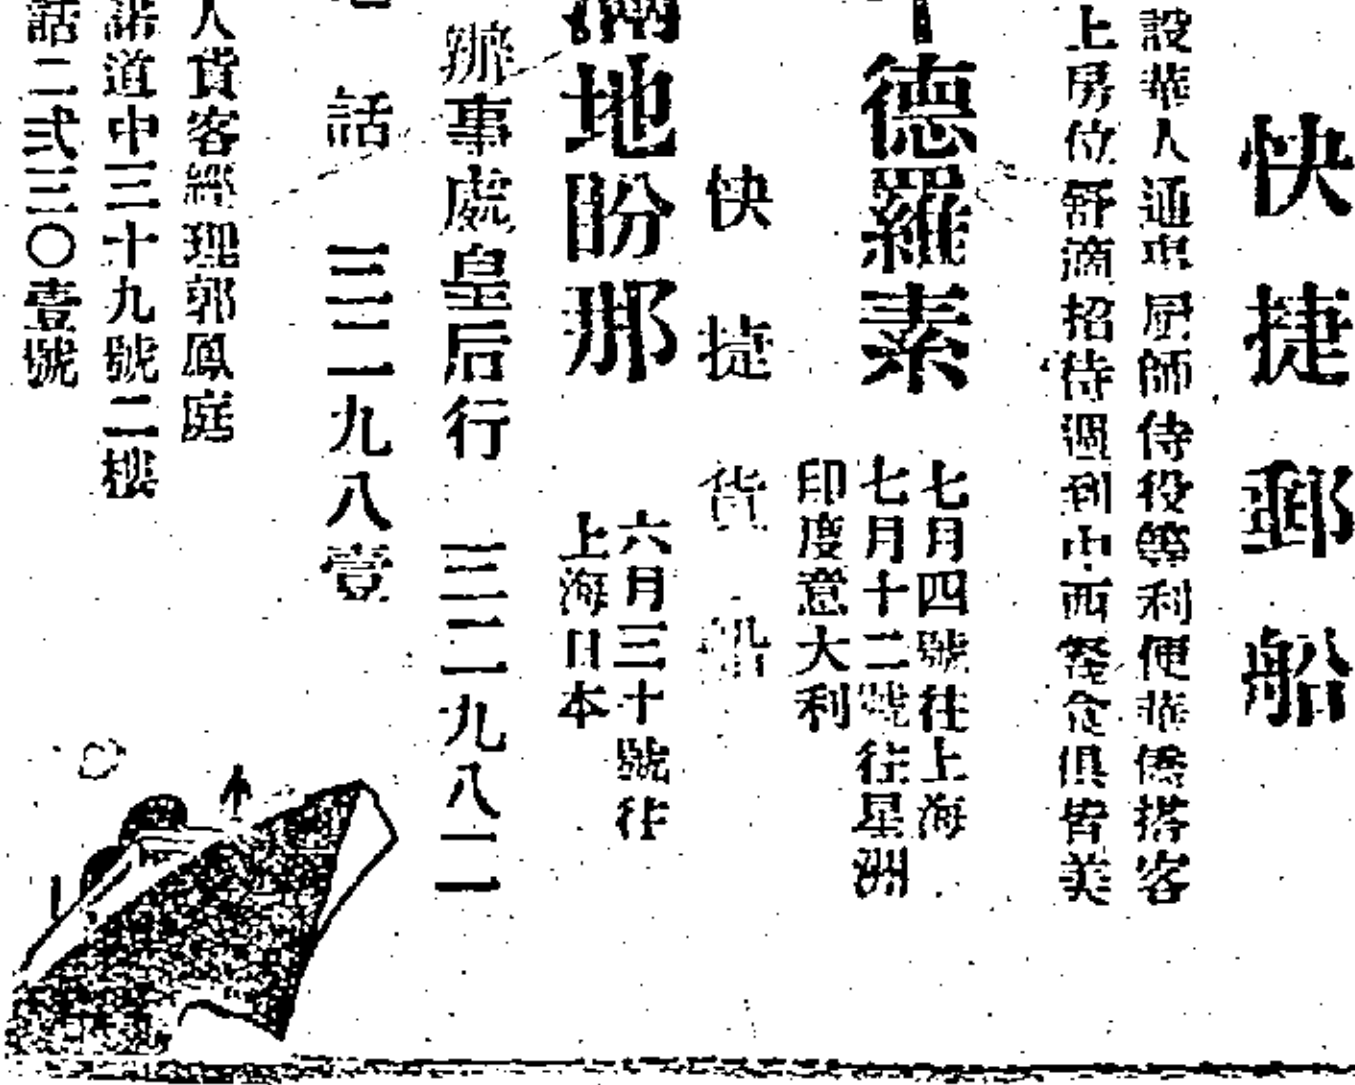 快捷郵船
設華人通事厨師侍役等利便華僑搭客
上房位舒適招待週到中西餐食俱皆美
德羅素
七月四號往上海
七月十二號往星洲
印度意大利
快捷貨船
滿地盼那
六月三十號往
上海日本
辦事處皇后行 三二九八二
話 三二九八壹
人貨客經理郭鳳庭
諾道中三十九號二樓
話二弍三〇壹號